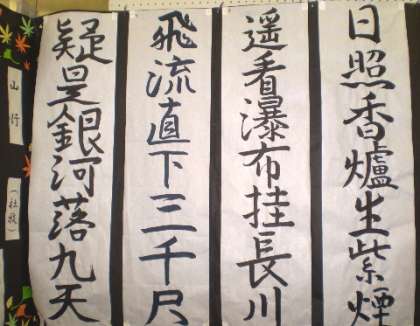 日照香爐生紫煙
遥看瀑布挂長川
飛流直下三千尺
疑是銀河落九天
山行
（杜牧）